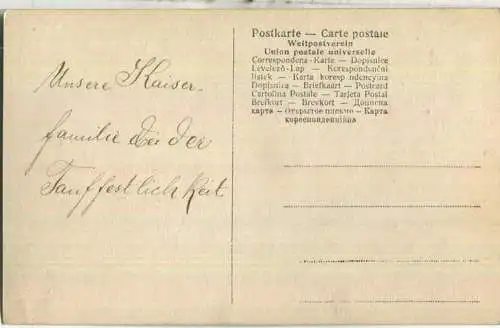 Unsere Kaiser-
familie bei der
Tauffestlichkeit
Postkarte — Carte postale
Weltpostverein
Union postale universelle
Correspondenz-Karte — Dopisnice
Levelező-Lap — Korespondenční
lístek — Karta korespondencyjna
Dopisnica — Briefkaart — Postcard
Cartolina Postale — Tarjeta Postal
Brefkort — Brevkort — Дописна
карта — Открытое письмо — Карта
кореспонденційна